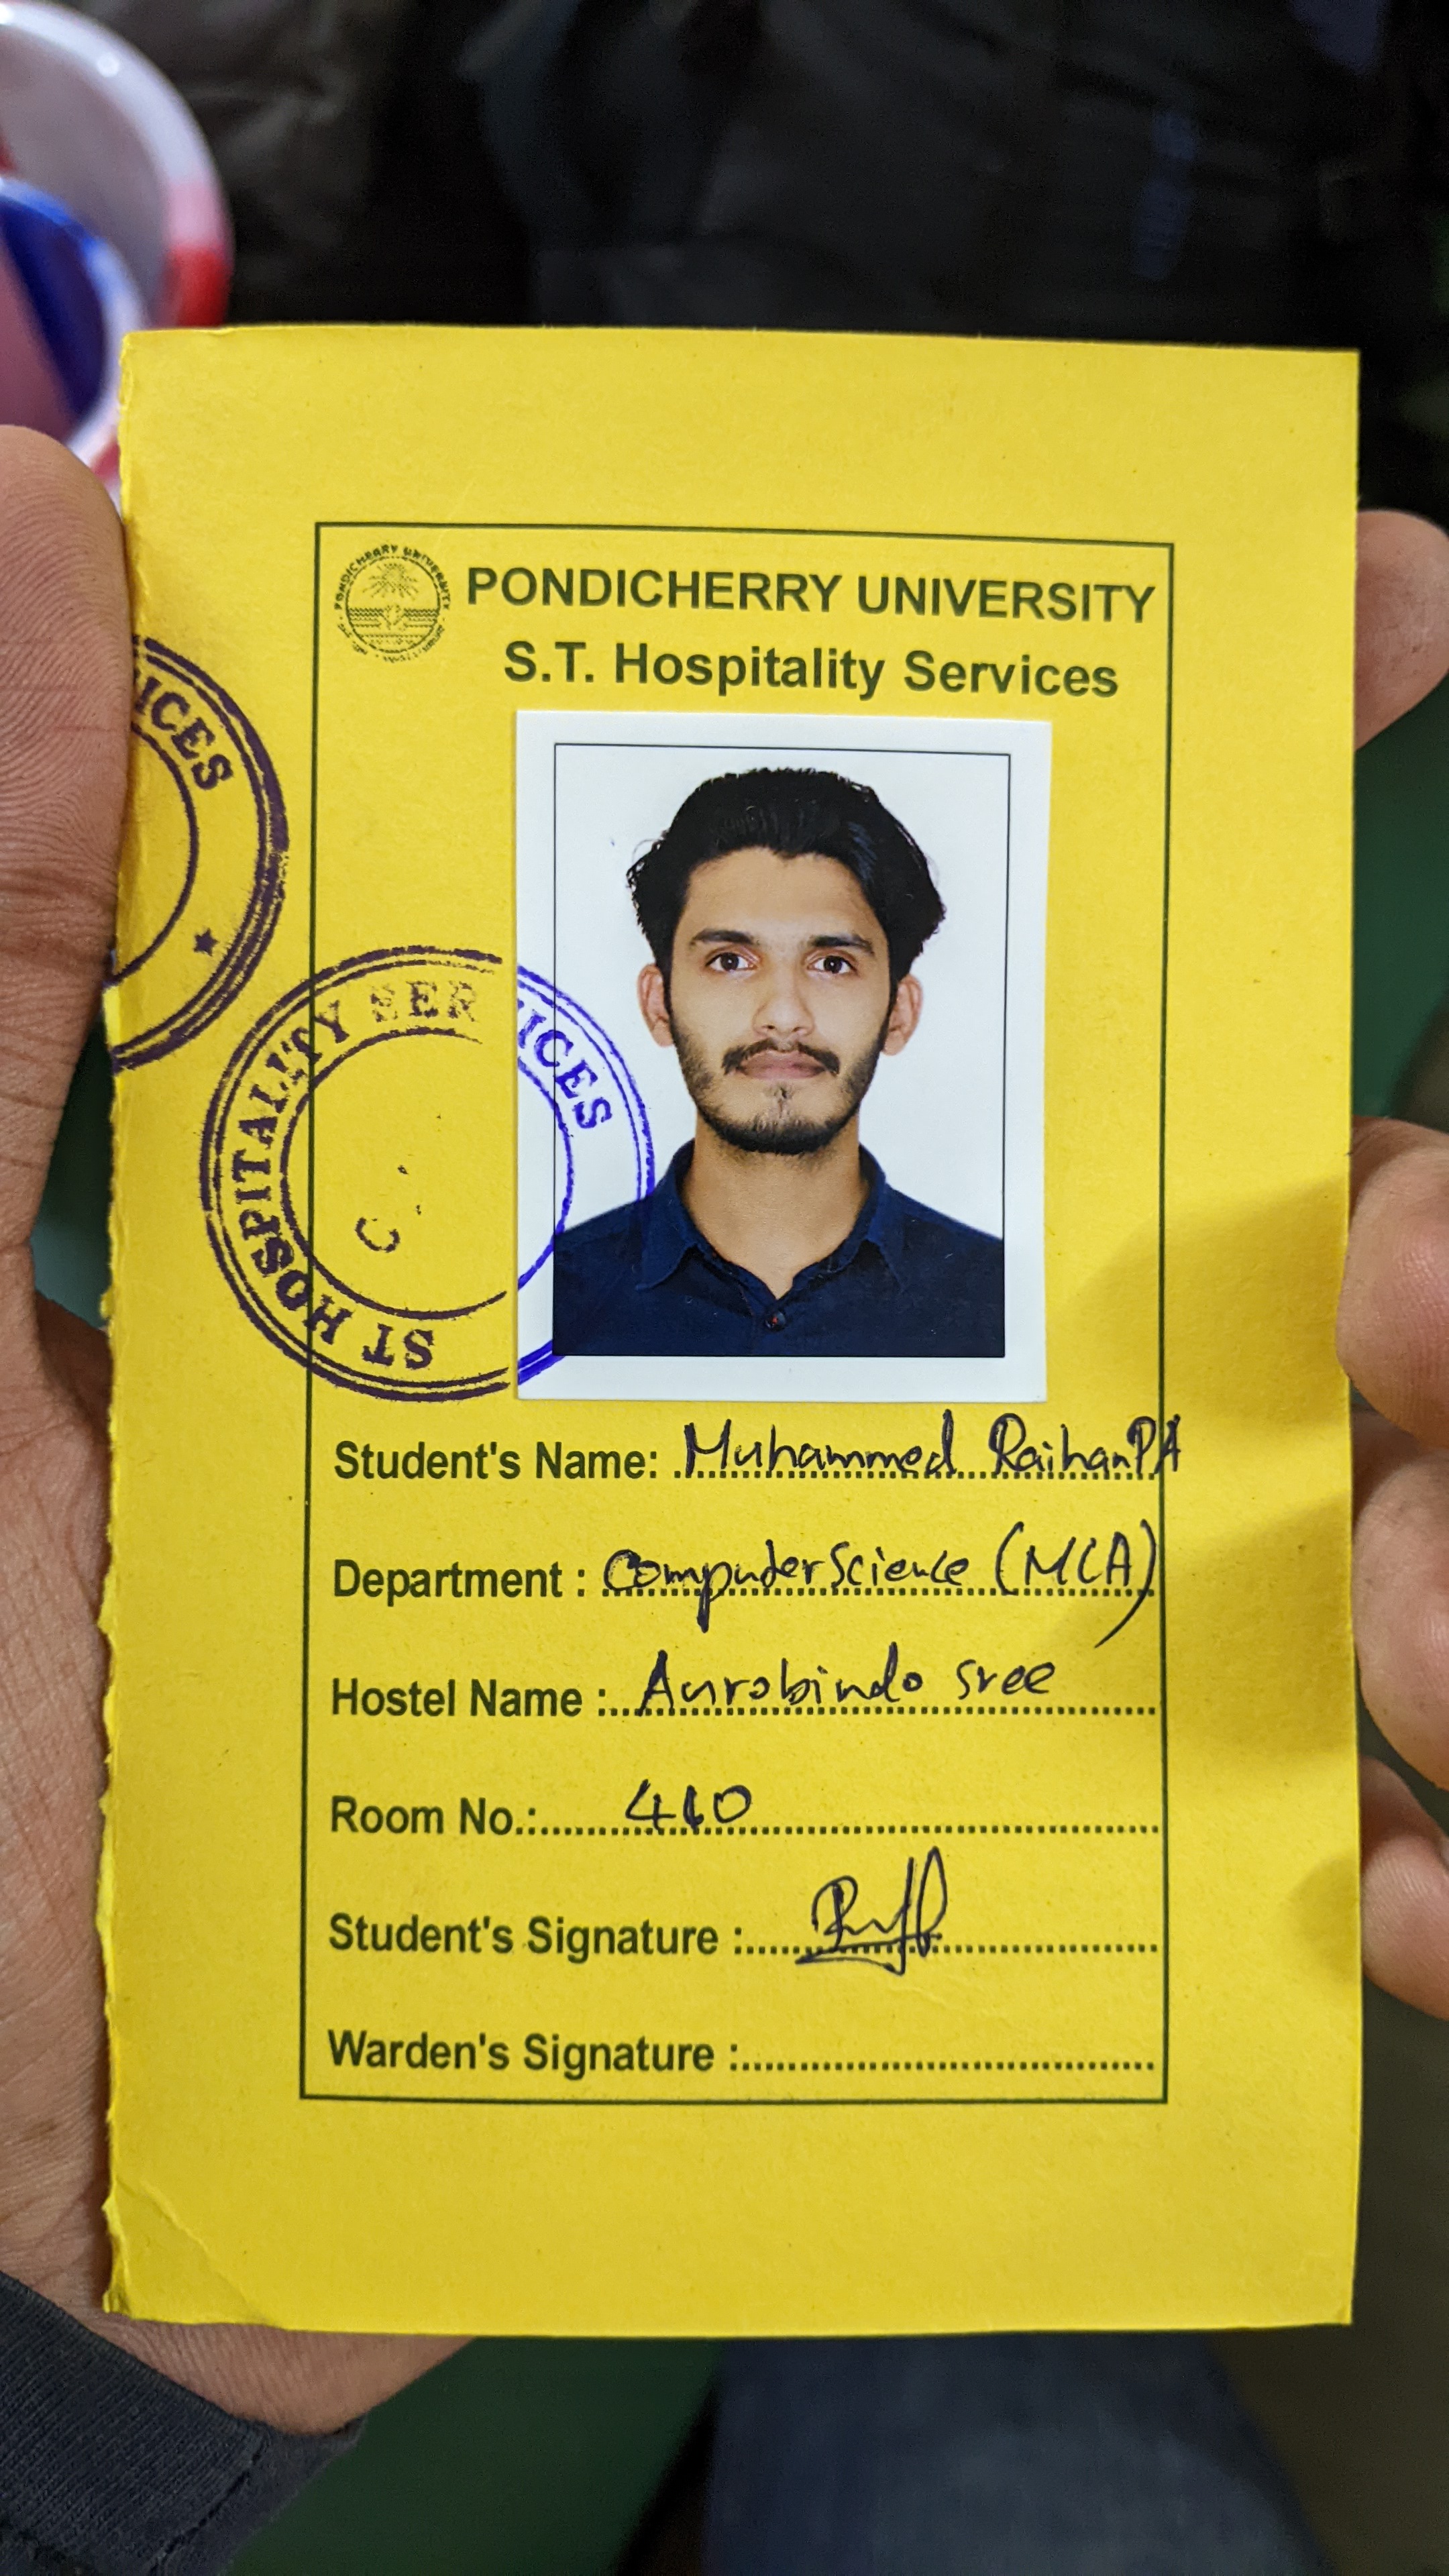 PONDICHERRY UNIVERSITY
PONDICHERRY UNIVERSITY
S.T. Hospitality Services
ICES
ST HOSPITALITY SER ICES
Student's Name: Muhammed Raihan PA
Department : Computer Science (MCA)
Hostel Name : Aurobindo sree
Room No.: 410
Student's Signature :
Warden's Signature :